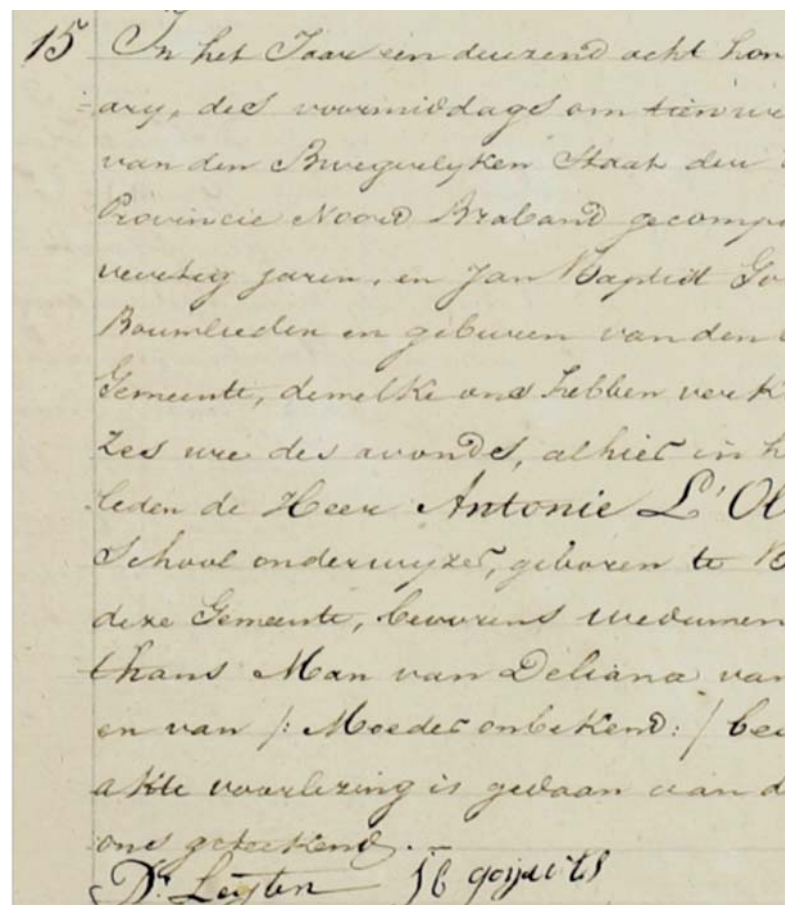 15 In het Jaar een duizend acht hon
ary, des voormiddags om tien ure
van den Burgerlyken Staat der
Provincie Noord Braband gecompa
veertig jaren, en Jan Baptist Go
Bouwlieden en gebuuren van den
Gemeente, dewelke ons hebben verk
Zes ure des avonds, alhier in h
leden de Heer Antonie L'Ol
School onderwyzer, geboren te B
deze Gemeente, bevorens weduwen
thans Man van Deliana van
en van /: Moeder onbekend: / bei
akte voorlezing is gedaan aan d
ons geteekend. —
Dr. Leijten J b goijaerts